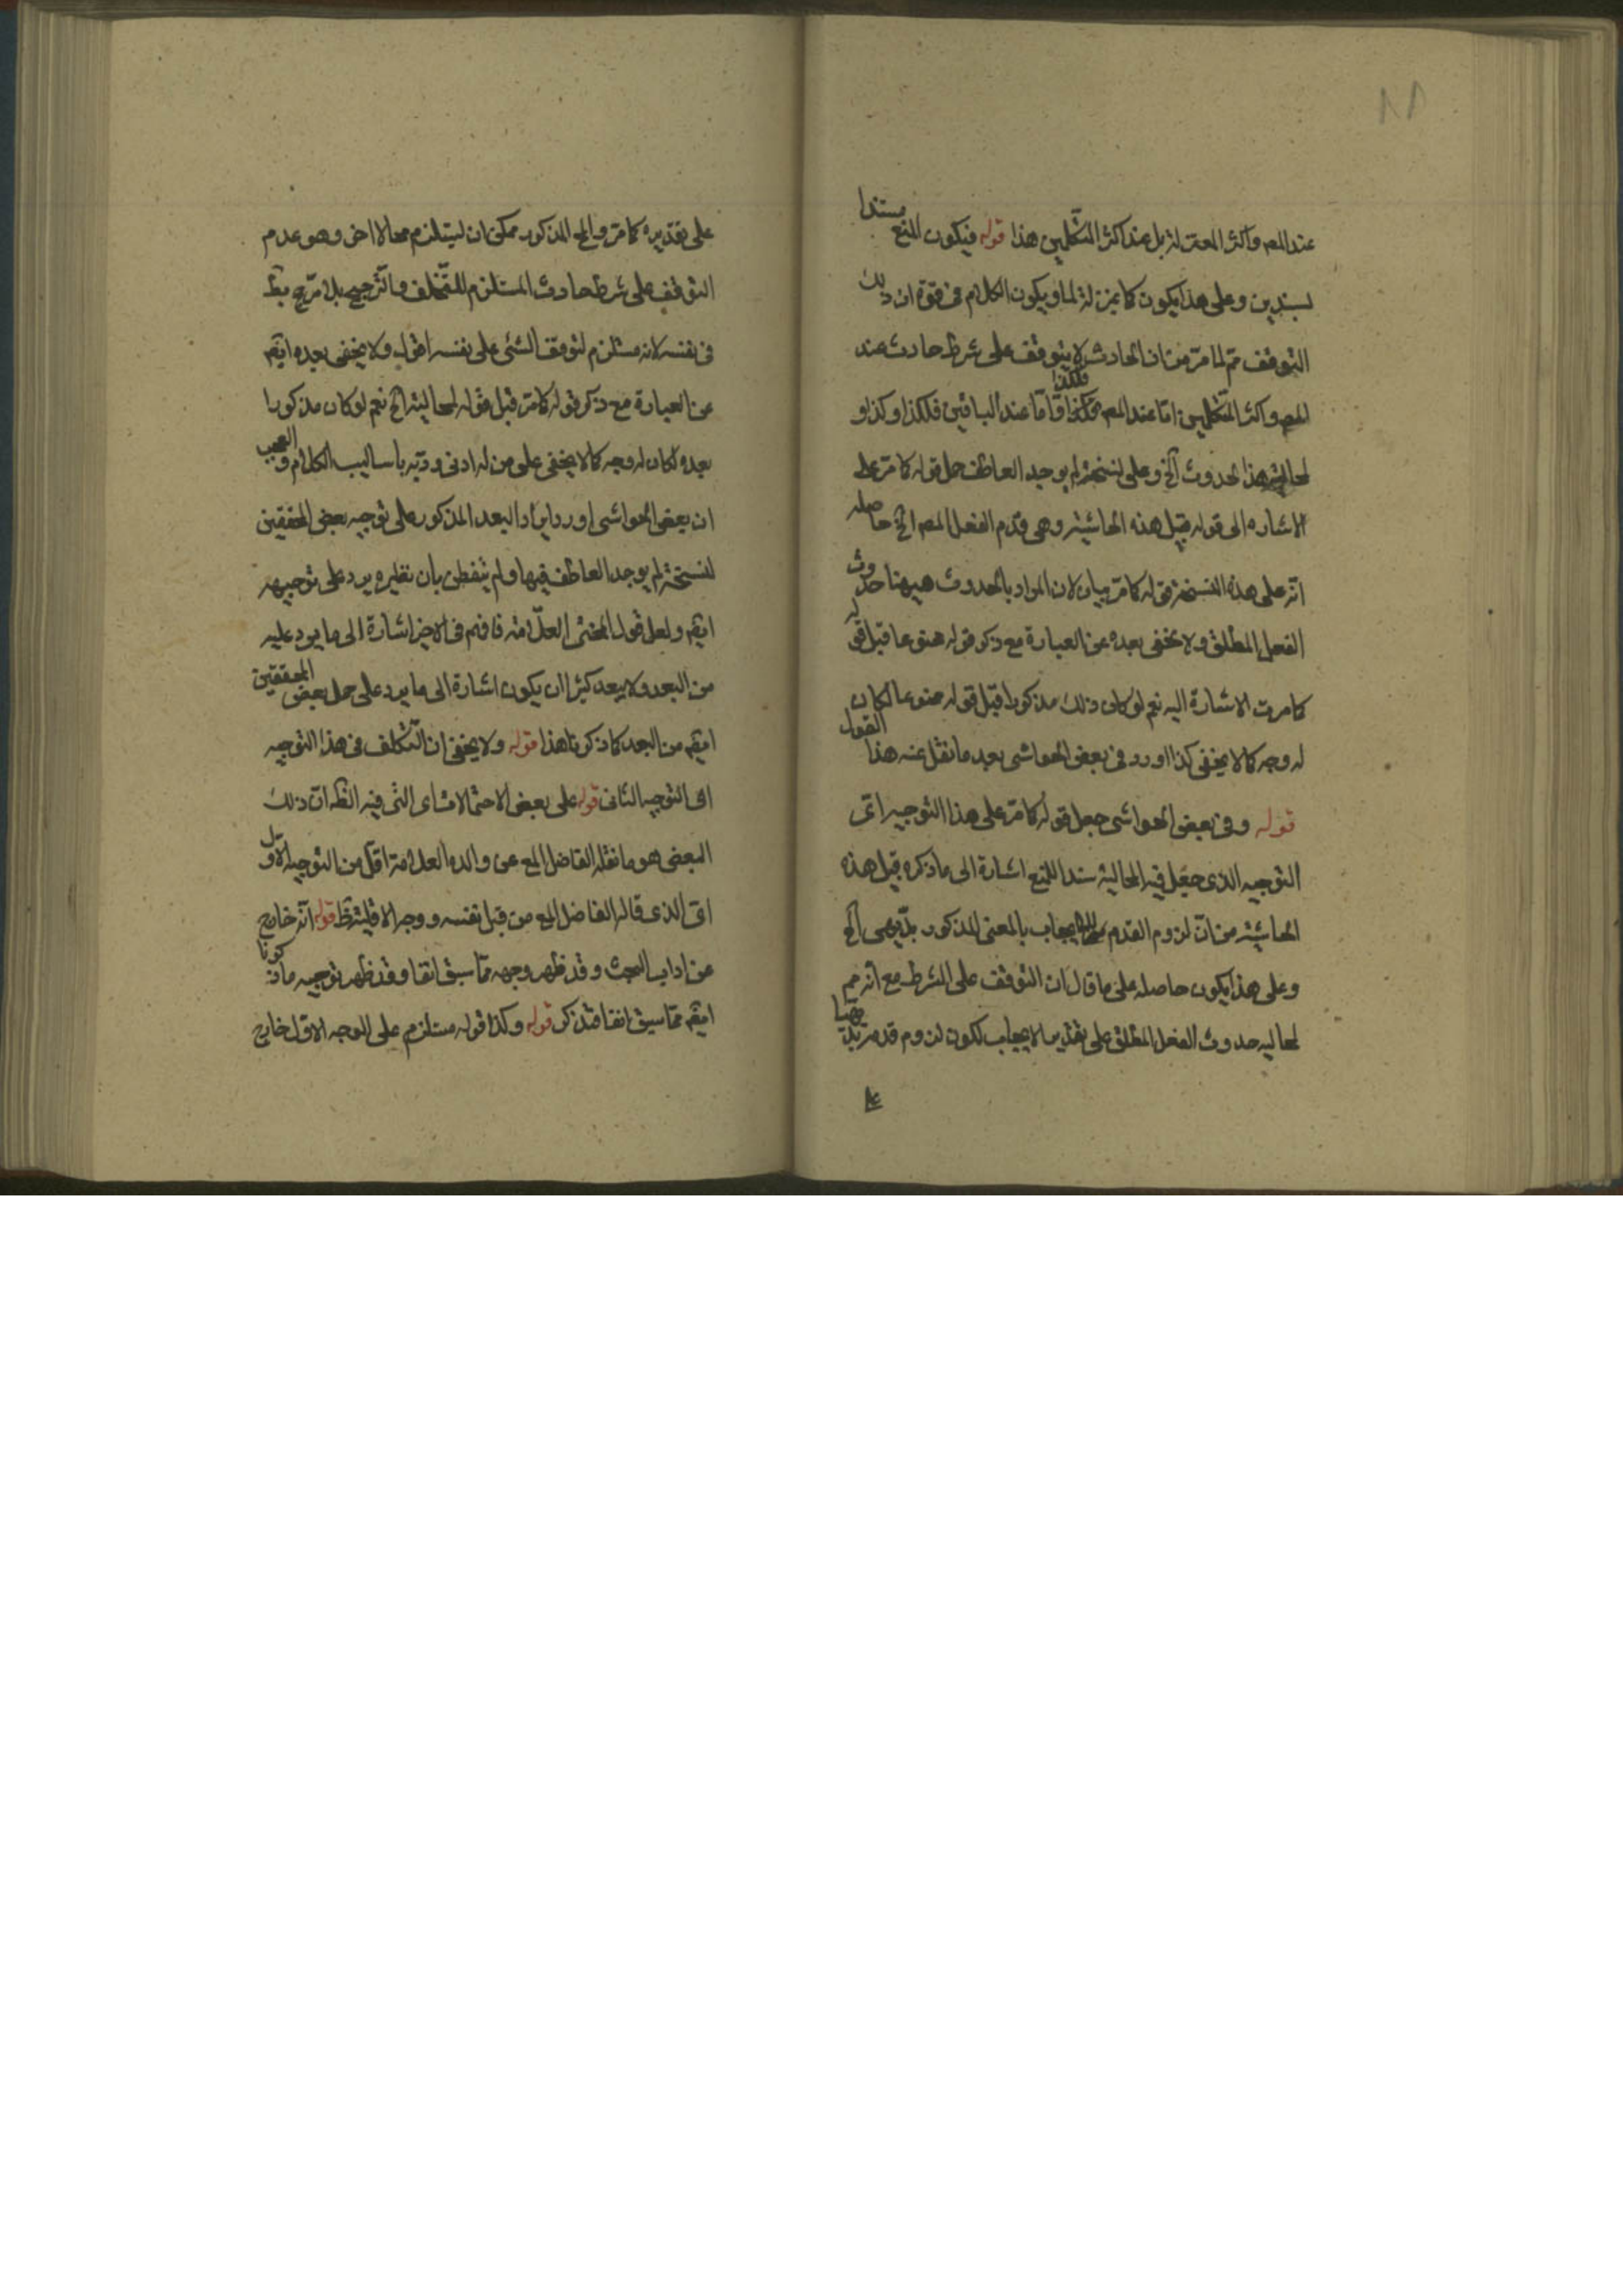 ١٨
عند المص واكثر المعتزلة بل عند اكثر المتكلمين هذا قوله فيكون المنع مستندا
لسندين وعلى هذا يكون كما بمنزلة لما ويكون الكلام فى قوة ان ذلك
التوقف مم لما مر من ان الحادث لا يتوقف على شرط حادث عند
المص واكثر المتكلمين اما عند المص فلكذا واما عند الباقين فلكذا وكذا و
لمحالية هذا الحدوث الخ وعلى نسخة لم يوجد العاطف حمل قوله كما مر على
الاشاره الى قوله قبيل هذه الحاشية وهى قدم الفعل المص الخ حاصله
انه على هذه النسخة قوله كما مر بيان لان المراد بالحدوث هيهنا حدوث
الفعل المطلق ولا يخفى بعده عن العبارة مع ذكر قوله هنو عا قبل قوله
كما مرت الاشارة اليه نعم لو كان ذلك مذكورا قبل قوله صنوعا لكان
له وجه كما لا يخفى كذا اورد فى بعض الحواشى بعد ما نقل عنه هذا القول
قوله وفى بعض الحواشى جعل قوله كما مر على هذا التوجيه اى
التوجيه الذى جعل فيه المحالية سندا للمنع اشارة الى ما ذكره قبل هذه
الحاشية من ان لزوم القدم للايجاب بالمعنى المذكور بديهى الخ
وعلى هذا يكون حاصله على ما قال ان التوقف على الشرط مع انه مم
لمحاليه حدوث الفعل المطلق على تقدير الايجاب لكون لزوم قدمه بديهيا
على
على تقديره كما مر والمح المذكور ممكن ان يستلزم محالا اخر وهو عدم
التوقف على شرط حادث المستلزم للتخلف والترجيح بلا مرجح
فى نفسه لانه مستلزم لتوقف الشئ على نفسه اقول ولا يخفى بعده ايضم
عن العبارة مع ذكر قوله كما مر قبل قوله لمحالية الخ نعم لو كان مذكورا
بعده لكان له وجه كما لا يخفى على من له ادنى دربة باساليب الكلام والعجب
ان بعض الحواشى اورد ايراد البعد المذكور على توجيه بعض المحققين
لنسخة لم يوجد العاطف فيها ولم يتفطن بان نظيره يرد على توجيهه
ايضم ولعل قول المحشى العلامة فافهم فى الاخر اشارة الى ما يرد عليه
من البعد ولا يبعد كثيرا ان يكون اشارة الى ما يرد على حمل بعض المحققين
ايضم من البعد كما ذكرنا هذا قوله ولا يخفى ان التكلف فى هذا التوجيه
اى التوجيه الثانى قوله على بعض الاحتمالات اى التى فيه الظه ان ذلك
البعض هو ما نقله الفاضل المع عن والده العلامة اقل من التوجيه الاول
اى الذى قاله الفاضل المع من قبل نفسه ووجه الاقلية ظ قوله انه خارج
عن اداب البحث وقد ظهر وجهه مما سبق انفا وقد ظهر توجيه ما ذكرنا
ايضم مما سبق انفا فتذكر قوله وكذا قوله مستلزم على الوجه الاول خارج